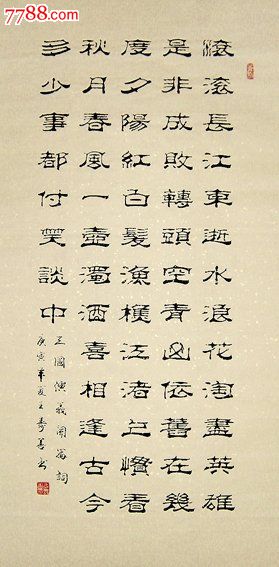 7788.com
滾滾長江東逝水浪花淘盡英雄
是非成敗轉頭空青山依舊在幾
度夕陽紅白髮漁樵江渚上慣看
秋月春風一壺濁酒喜相逢古今
多少事都付笑談中
三國演義開篇詞
庚寅年夏王壽書